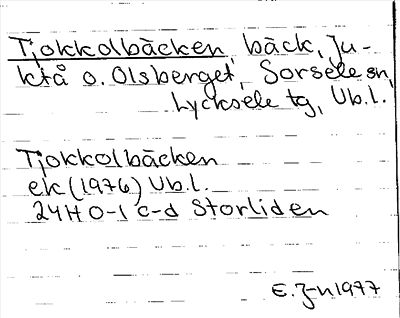 Tjokkolbäcken, bäck, Ju-
ktå o. Olsberget, Sorsele sn,
Lycksele tg, Vb.l.
Tjokkolbäcken
ek (1976) Vb.l.
24H 0-1 c-d Storliden
E. J-n 1977